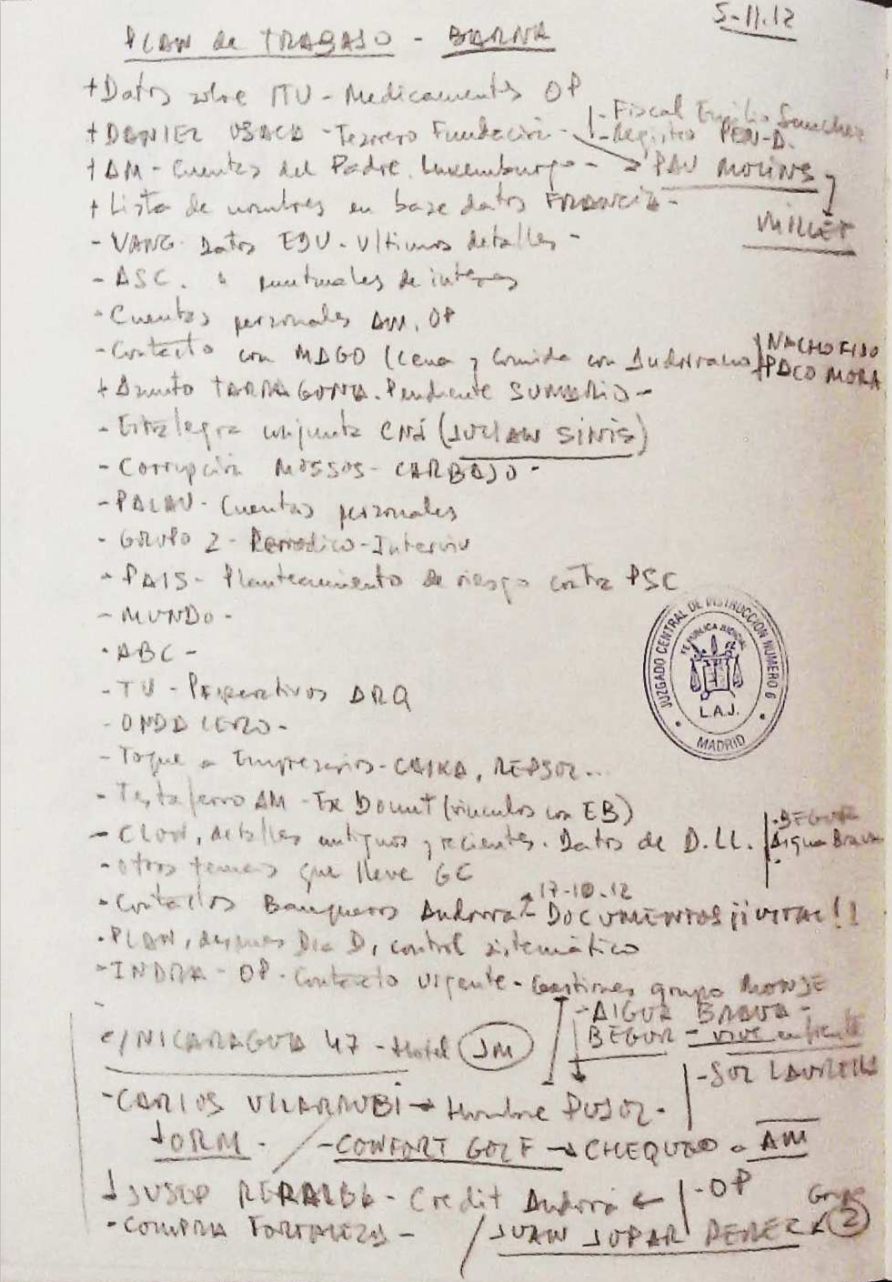 5-11.12
PLAN de TRABAJO - BARNA
+ Datos sobre ITV - Medicamentos OP
+ DANIEL OSACA - Tesorero Fundación - - Fiscal Emilio Sanchez
- Registro PEN-D.
+ AM - Cuentas del Padre. Luxemburgo - → PAU MOLINS y
MILLET
+ Lista de nombres en base datos FRANCIA -
- VANG. Datos EDU - Ultimos detalles -
- ASC. " puntuales de interes
- Cuentas personales AM, OP
- Contacto con MAGO (Cena y Comida con Andorrano) NACHO FIJO
+ PACO MORA
+ Asunto TARRAGONA. Pendiente SUMARIO -
- Estrategia conjunta CNI (JUCLAN SINIS)
- Corrupción MOSSOS - CARBAJO -
- PALAU - Cuentas personales
- GRUPO Z - Periodico - Interviu
- PAIS - Planteamiento de riesgo contra PSC
- MUNDO -
- ABC -
- TV - Preparativos ARQ
- ONDA CERO -
- Toque a Empresarios - CAIXA, REPSOL...
- Testaferro AM - Ex Donut (vinculos con EB)
- CLOW, detalles antiguos y recientes. Datos de D.LL. - BEGUR
Aigua Brava
- otros temas que lleve GC
- Contactos Banqueros Andorra 2-17-10.12
DOCUMENTOS ¡¡VITAL!!
- PLAN, despues Dia D, control sistemático
- INDRA - OP - Contacto urgente - Gestiones grupo MONJE
- AIGUA BRAVA -
BEGUR - vive enfrente
c/ NICARAGUA 47 - Hotel JM
- SOL LAURELLS
- CARLOS VILARRUBI → Hombre PUJOL -
↓ ORM. / - CONFORT GOLF → CHEQUEO a AM
↓ JUSEP PERALBA - Credit Andorra ← | - OP Grupo 2
- COMPRA FORTALEZA - / JUAN JOFAR PEREZ
JUZGADO CENTRAL DE INSTRUCCION NUMERO 6
FE PUBLICA JUDICIAL
L.A.J.
MADRID